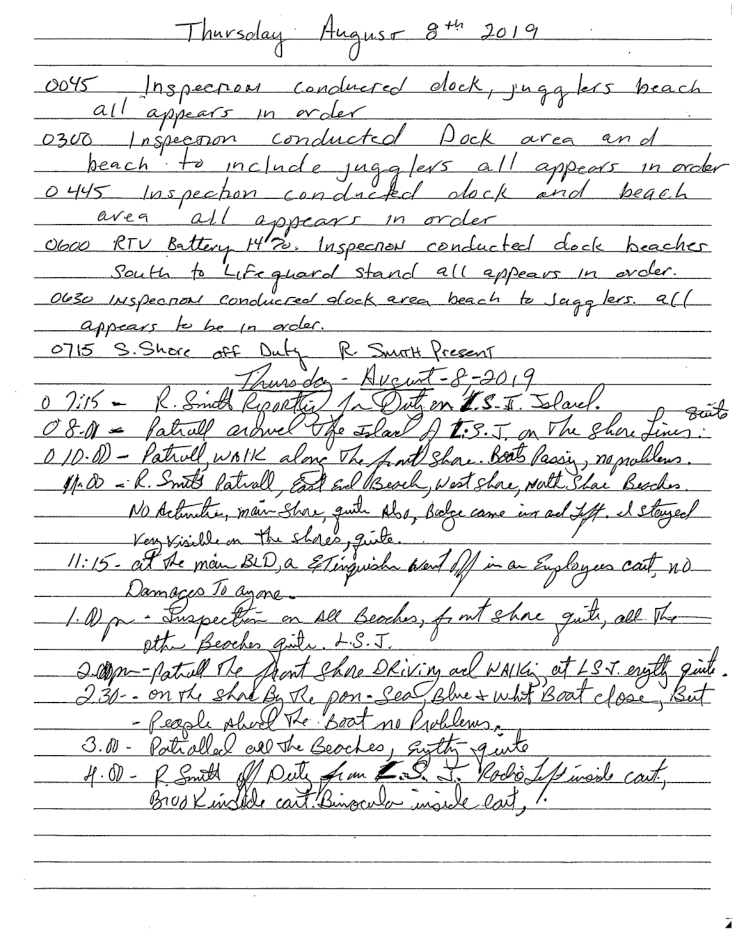 Thursday August 8th 2019
0045 Inspection conducted dock, jugglers beach
all appears in order
0300 Inspection conducted Dock area and
beach to include jugglers all appears in order
0445 Inspection conducted dock and beach
area all appears in order
0600 RTV Battery 14%. Inspection conducted dock beaches
South to Lifeguard stand all appears in order.
0630 Inspection conducted dock area beach to Jugglers. all
appears to be in order.
0715 S. Shore off Duty R. Smith Present
Thursday - August-8-2019
07:15 - R. Smith Reporting Duty on L.S.J. Island.
08-01 = Patrall the Island L.S.J. on The Shore Lines. quite
010.00 - Patroll, WAlK along The front Shore. Boats Passing, no problems.
11.00 - R. Smith Patrall, East End Beach, West Shore, North Shore Beaches.
No Activities, main Shore, quite Also, Badge came in and left. I stayed
Very Visible on the shores, quite.
11:15 - at the main BLD, a went off in an Employees cart, no
Damages To anyone.
1.00 pm - Inspection on All Beaches, front Shore quite, all The
other Beaches quite. L.S.J.
2.00pm - Patrall The front Shore DRiving and WALKing at L.S.J. quite.
2.30 - on the Shore By The Sea, Blue & whit Boat close, But
- People The Boat no Problems.
3.00 - Patralled all The Beaches, quite
4.00 - R. Smith off Duty from L.S.J. Radio Left inside cart,
inside cart. Binocular inside cart,